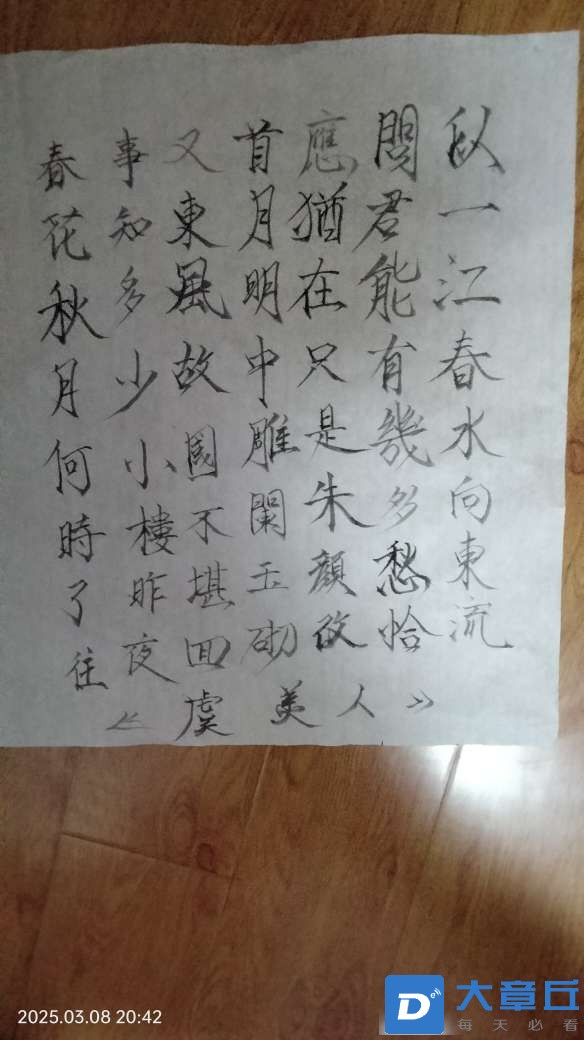 春花秋月何時了往
事知多少小樓昨夜
又東風故國不堪囬
首月明中雕闌玉砌
應猶在只是朱顔改
問君能有幾多愁恰
似一江春水向東流
《虞美人》
2025.03.08 20:42
大章丘
每天必看